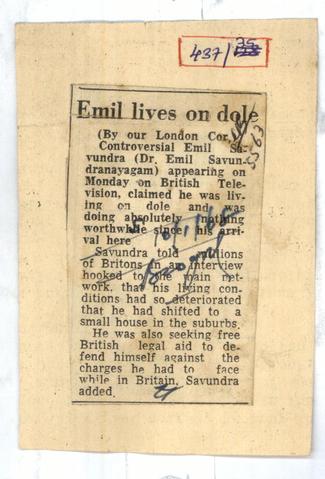 437/
Emil lives on dole
(By our London Cor.)
Controversial Emil Sa-
vundra (Dr. Emil Savun-
dranayagam) appearing on
Monday on British Tele-
vision, claimed he was liv-
ing on dole and was
doing absolutely nothing
worthwhile since his arri-
val here
Savundra told millions
of Britons in an interview
hooked to the main net-
work, that his living con-
ditions had so deteriorated
that he had shifted to a
small house in the suburbs.
He was also seeking free
British legal aid to de-
fend himself against the
charges he had to face
while in Britain, Savundra
added.